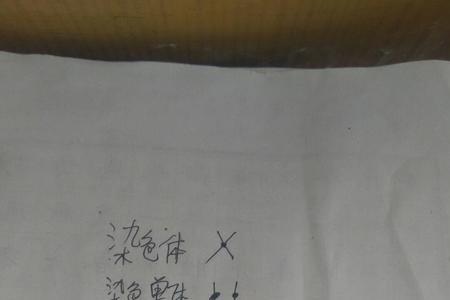 染色体
染色单体